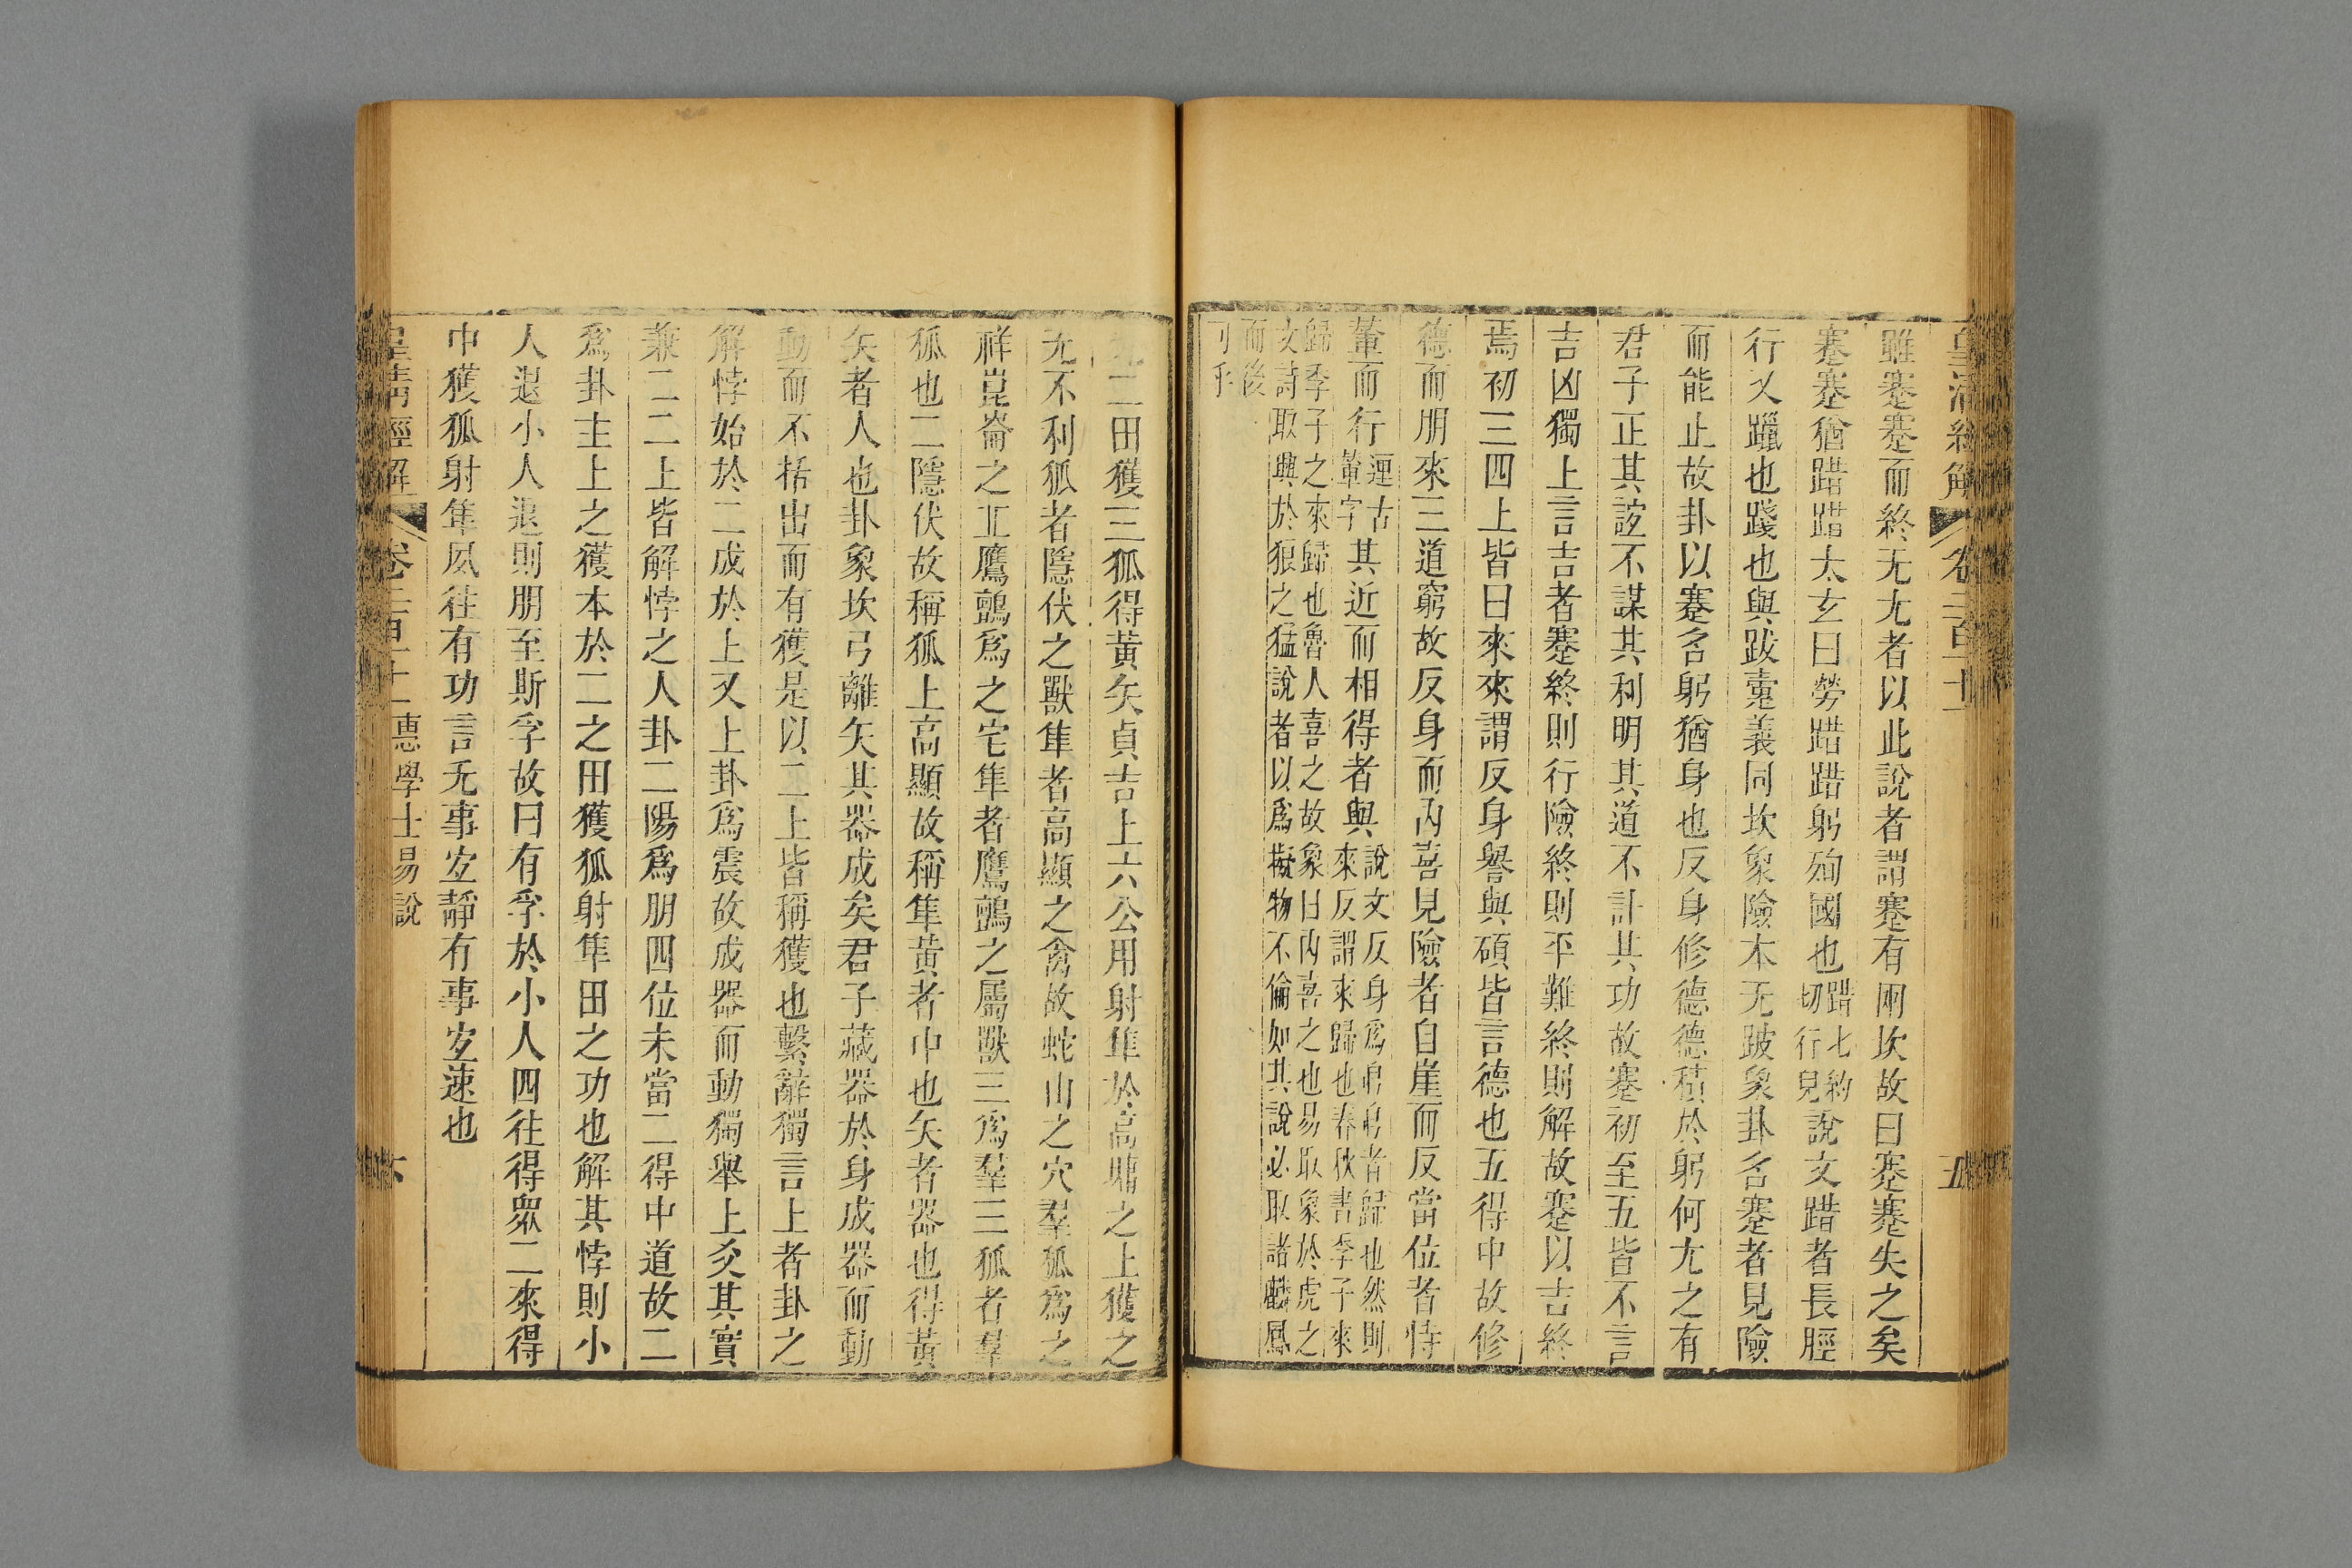 皇清經解 卷二百十一 五
雖蹇蹇而終无尤者以此說者謂蹇有兩坎故曰蹇蹇失之矣
蹇蹇猶踖踖太玄曰勞踖踖躬殉國也踖七約切行皃說文踖者長脛
行又躐也踐也與跋疐義同坎象險本无跛象卦名蹇者見險
而能止故卦以蹇名躬猶身也反身修德德積於躬何尤之有
君子正其誼不謀其利明其道不計其功故蹇初至五皆不言
吉凶獨上言吉者蹇終則行險終則平難終則解故蹇以吉終
焉初三四上皆曰來來謂反身譽與碩皆言德也五得中故修
德而朋來三道窮故反身而內喜見險者自崖而反當位者恃
輦而行連古輦字其近而相得者與說文反身為㐆㐆者歸也然則來反謂來歸也春秋書季子來
歸季子之來歸也魯人喜之故象曰內喜之也易取象於虎之
故詩取興於狼之猛說者以爲擬物不倫如其說必取諸麟鳳
而後
可乎
九二田獲三狐得黃矢貞吉上六公用射隼於高墉之上獲之
无不利狐者隱伏之獸隼者高顯之禽故蛇山之穴羣狐爲之
祥崑崙之丘鷹鸇爲之宅隼者鷹鸇之屬獸三爲羣三狐者羣
狐也二隱伏故稱狐上高顯故稱隼黃者中也矢者器也得黃
矢者人也卦象坎弓離矢其器成矣君子藏器於身成器而動
動而不括出而有獲是以二上皆稱獲也繫辭獨言上者卦之
解悖始於二成於上又上卦爲震故成器而動獨舉上爻其實
兼二二上皆解悖之人卦二陽爲朋四位未當二得中道故二
爲卦主上之獲本於二之田獲狐射隼田之功也解其悖則小
人退小人退則朋至斯孚故曰有孚於小人四往得眾二來得
中獲狐射隼夙往有功言无事宜靜有事宜速也
皇清經解 卷二百十一 惠學士易說 六